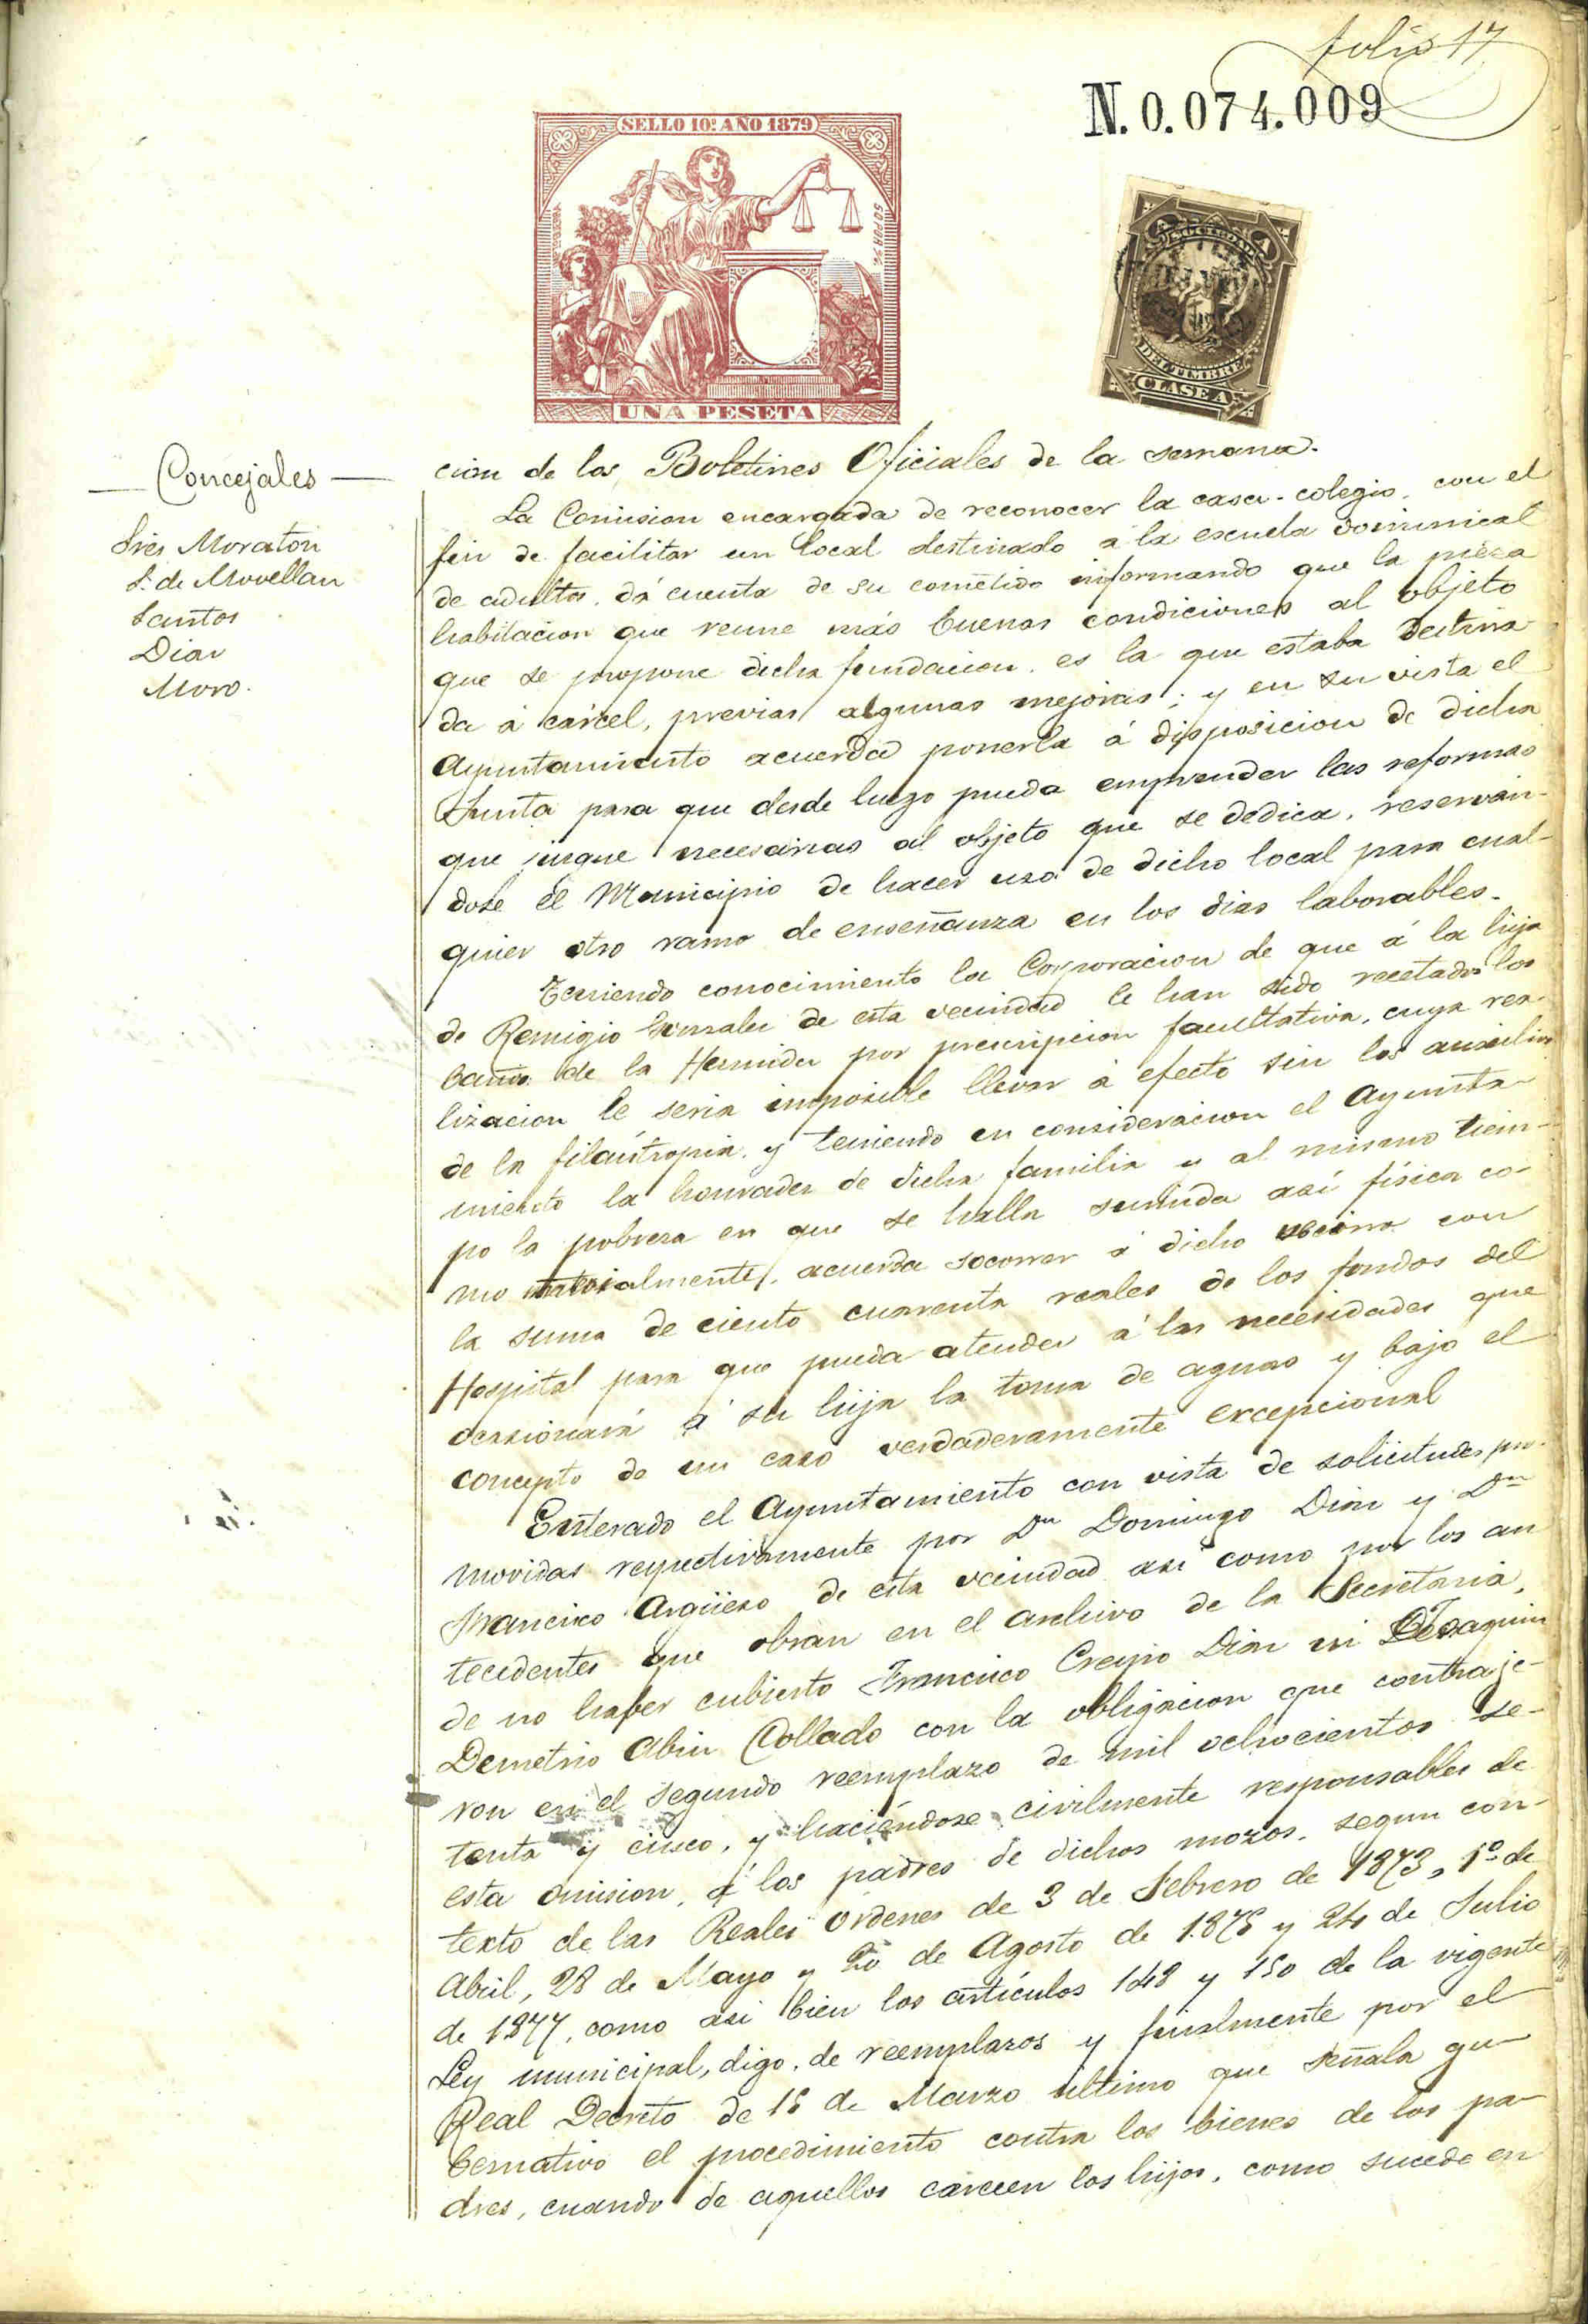 folio 17
N.0.074.009
SELLO 10º AÑO 1879
UNA PESETA
SOCIEDAD
DEL TIMBRE
CLASE A
Concejales
Sres Moraton
S. de Movellan
Santos
Diaz
Moro.
cion de los Boletines Oficiales de la semana.
La Comision encargada de reconocer la casa-colegio, con el
fin de facilitar un local destinado á la escuela dominical
de adultos, dá cuenta de su cometido informando que la pieza
habitacion que reune más buenas condiciones al objeto
que se propone dicha fundacion, es la que estaba destina-
da á cárcel, previas algunas mejoras; y en su vista el
Ayuntamiento acuerda ponerla á disposicion de dicha
Junta para que desde luego pueda emprender las reformas
que juzgue necesarias al objeto que se dedica, reserván-
dose el Municipio de hacer uso de dicho local para cual-
quier otro ramo de enseñanza en los dias laborables.
Teniendo conocimiento la Corporacion de que á la hija
de Remigio Gonzalez de esta vecindad le han sido recetados los
baños de la Hermida por prescripcion facultativa, cuya rea-
lizacion le seria imposible llevar á efecto sin los auxilios
de la filantropia, y teniendo en consideracion el Ayunta-
miento la honradez de dicha familia y al mismo tiem-
po la pobreza en que se halla sumida así física co-
mo materialmente, acuerda socorrer á dicho vecino con
la suma de ciento cuarenta reales de los fondos del
Hospital para que pueda atender á las necesidades que
ocasionará á su hija la toma de aguas y bajo el
concepto de un caso verdaderamente excepcional
Enterado el Ayuntamiento con vista de solicitudes pro-
movidas respectivamente por Dn Domingo Diaz y Dn
Francisco Argüeso de esta vecindad asi como por los an
tecedentes que obran en el archivo de la Secretaria,
de no haber cubierto Francisco Crespo Diaz ni Joaquin
Demetrio Abin Collado con la obligacion que contraje-
ron en el segundo reemplazo de mil ochocientos se-
tenta y cinco, y haciéndose civilmente responsables de
esta omision, á los padres de dichos mozos, segun con-
texto de las Reales Ordenes de 3 de Febrero de 1873, 1º de
Abril, 28 de Mayo y 20 de Agosto de 1.875 y 24 de Julio
de 1877, como asi bien los artículos 148 y 150 de la vigente
Ley municipal, digo, de reemplazos y finalmente por el
Real Decreto de 15 de Marzo último que señala gu-
bernativo el procedimiento contra los bienes de los pa-
dres, cuando de aquellos carecen los hijos, como sucede en